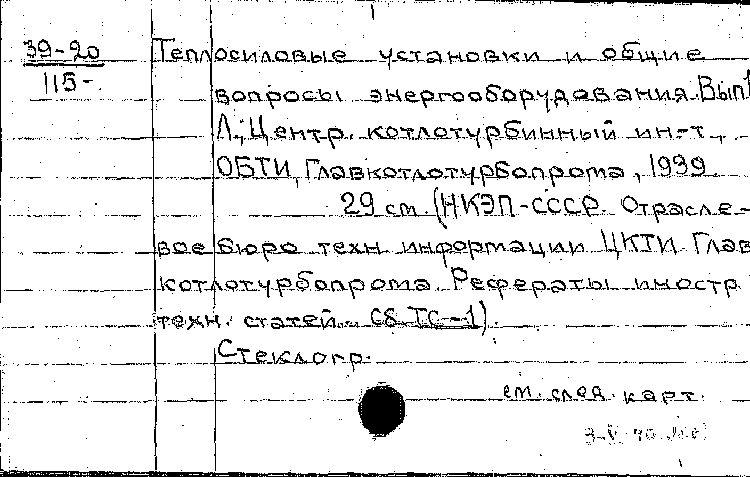 39-20
115-
Теплосиловые установки и общие
вопросы энергооборудования. Вып 1
Л., Центр. котлотурбинный ин-т,
ОБТИ, Главкотлотурбопрома, 1939.
29 см. (НКЭП-СССР. Отрасле-
вое бюро техн информации ЦКТИ Глав
котлотурбопрома. Рефераты иностр.
техн. статей. Сб ТС-1).
Стеклогр.
см. след. карт.
3-V